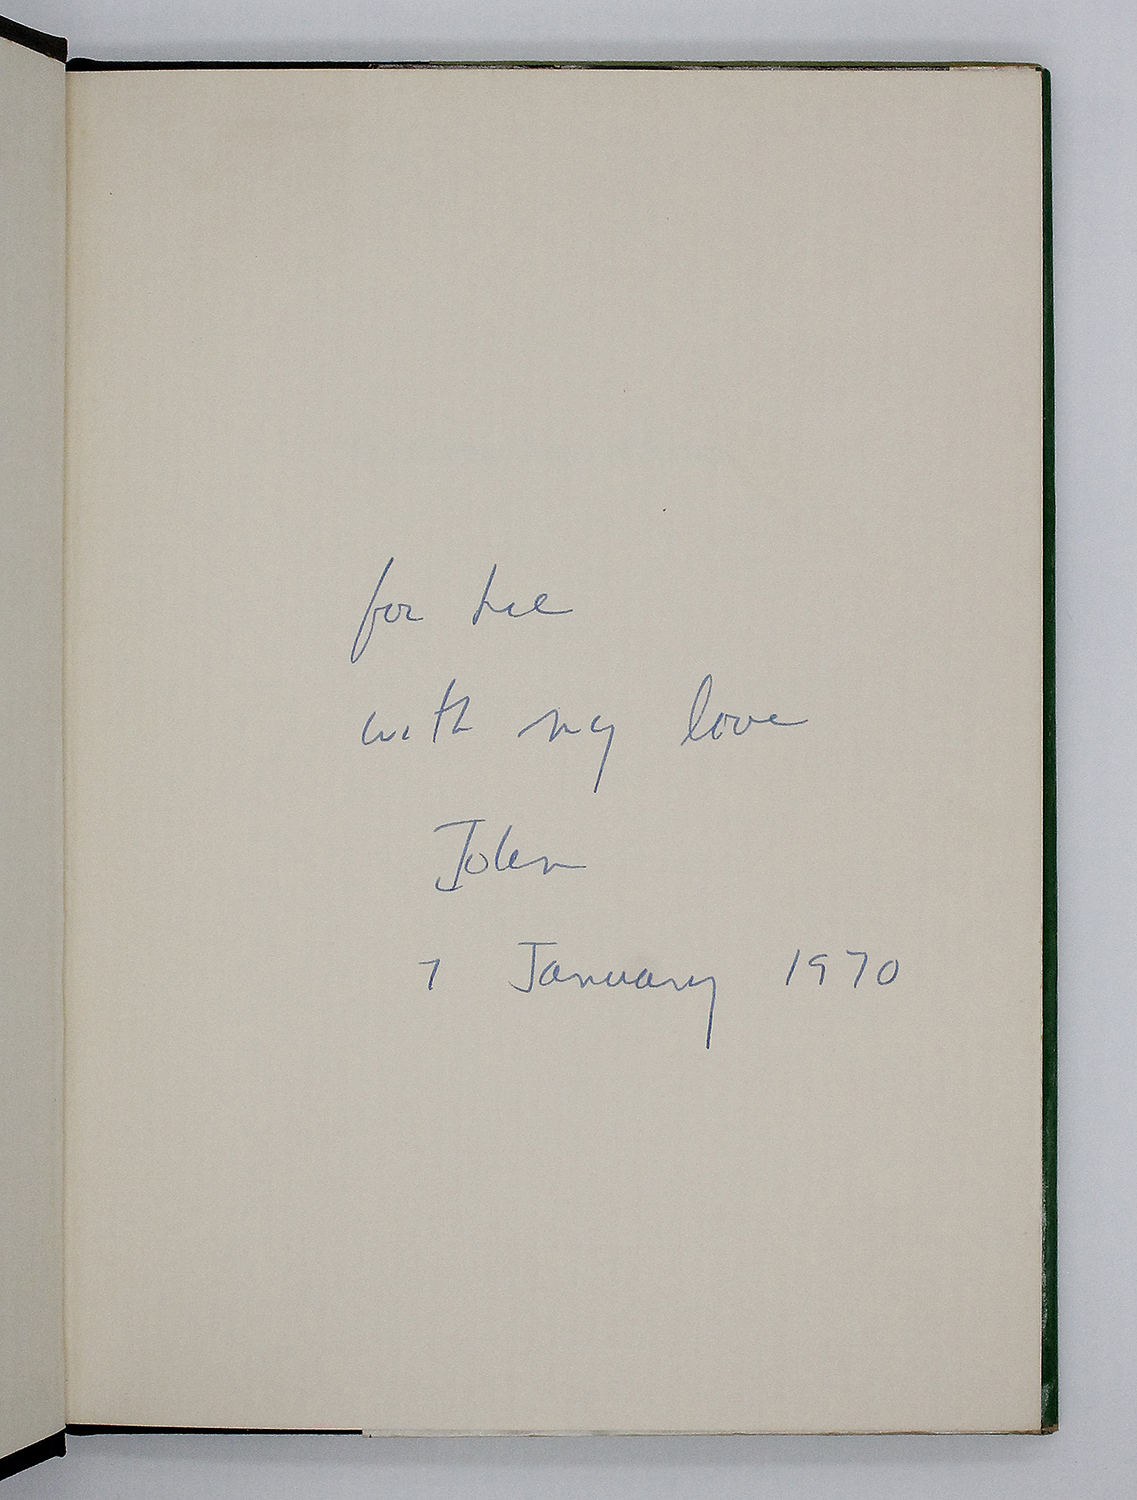 for
with my love
John
7 January 1970